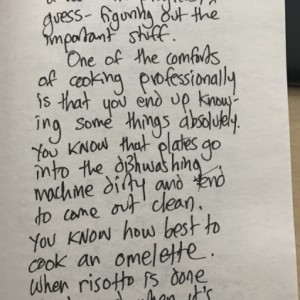 guess- figuring out the
important stuff.
One of the comforts
of cooking professionally
is that you end up know-
ing some things absolutely.
You KNOW that plates go
into the dishwashing
machine dirty and tend
to come out clean.
You KNOW how best to
cook an omelette.
When risotto is done